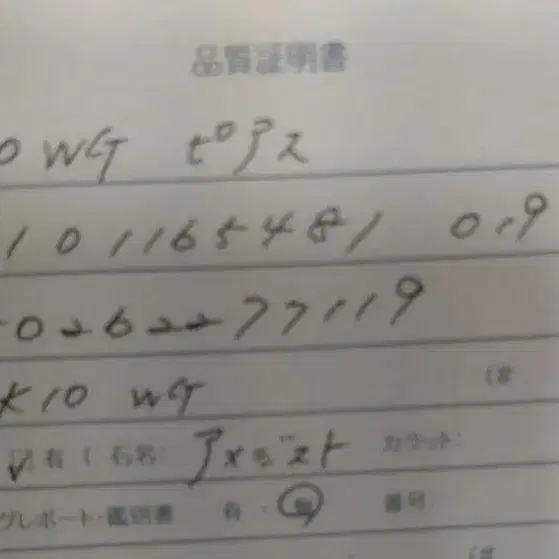 品質証明書
0 WG ピアス
101165481 0.9
0262277119
K10 WG
有 ( 石名 アメジスト カラット:
グレポート・鑑別書 有・無 番号